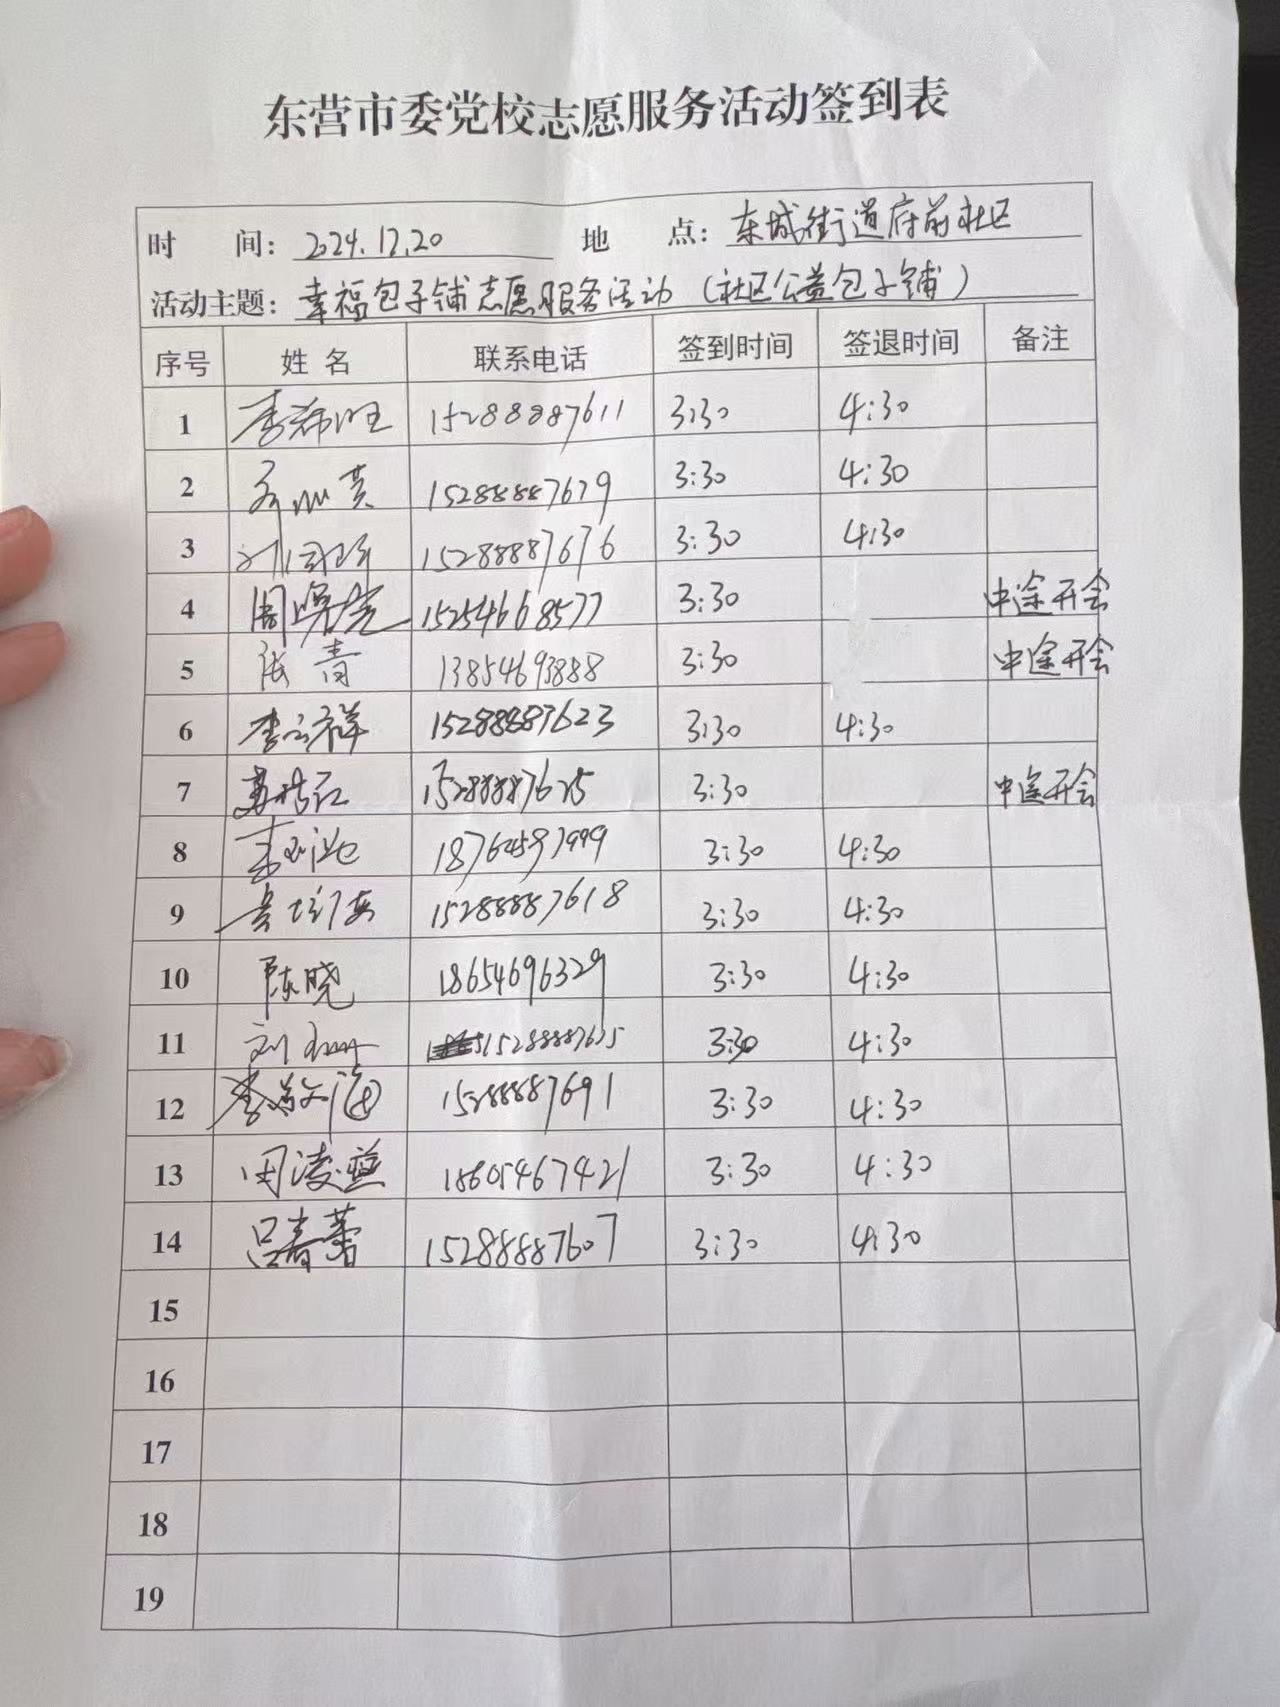 东营市委党校志愿服务活动签到表
时 间: 2024.12.20 地 点: 东城街道府前社区
活动主题: 幸福包子铺志愿服务活动（社区公益包子铺）
序号 姓 名 联系电话 签到时间 签退时间 备注
1 李希旺 15288887611 3:30 4:30
2 15288887679 3:30 4:30
3 15288887676 3:30 4:30
4 15254668577 3:30 中途开会
5 张青 13854693888 3:30 中途开会
6 李云祥 15288887623 3:30 4:30
7 3:30 中途开会
8 3:30 4:30
9 15288887618 3:30 4:30
10 陈晓 18654696329 3:30 4:30
11 3:30 4:30
12 15288887691 3:30 4:30
13 周凌燕 18605467421 3:30 4:30
14 吕春蕾 15288887607 3:30 4:30
15
16
17
18
19